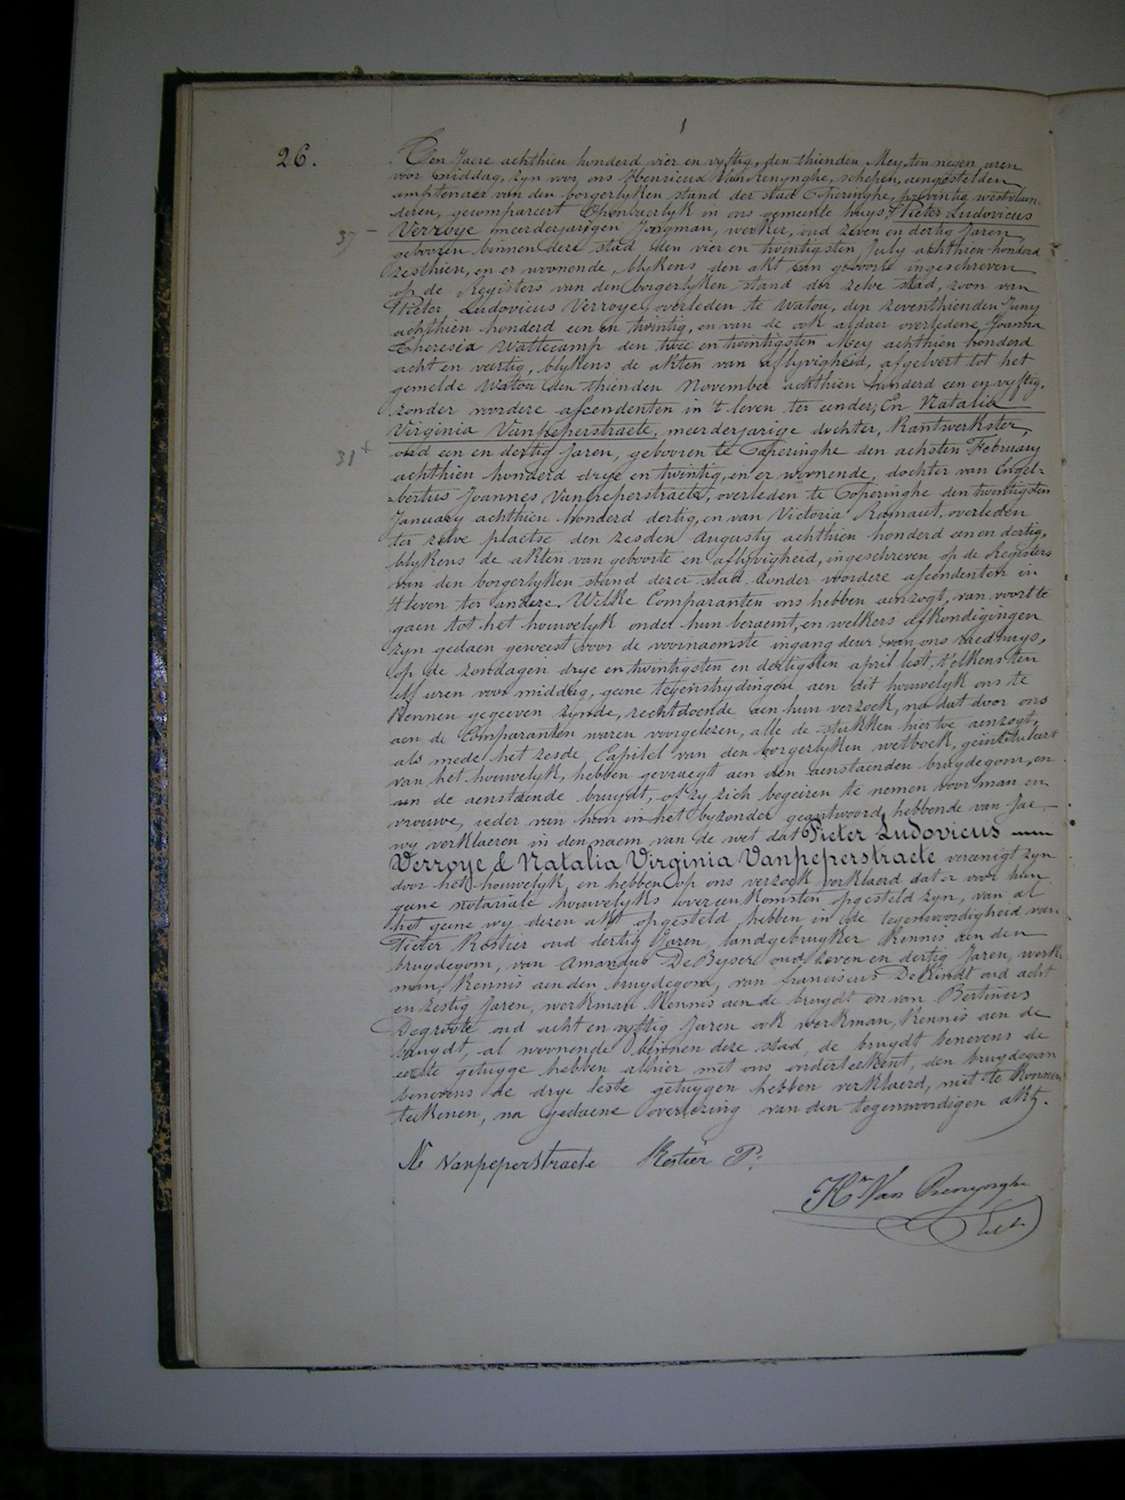 1
26.
Den Jaere achthien honderd vier en vyftig, den thienden Mey, ten negen uren
voor middag, zyn voor ons Henricus Van Renynghe, schepen, aengestelden
amptenaer van den borgerlyken stand der stad Poperinghe, provintie westvlaen-
deren, gecompareert openbaerlyk in ons gemeente huys, Pieter Ludovicus
37 Verroye meerderjarigen Jongman, werker, oud zeven en dertig Jaren,
gebooren binnen deze stad den vier en twintigsten July achthien honderd
zesthien, en er woonende, blykens den akt van geboorte ingeschreven
op de Registers van den borgerlyken stand der zelve stad, zoon van
Pieter Ludovicus Verroye, overleden te Watou, den zeventhienden Juny
achthien honderd een en twintig, en van de ook aldaer overledene Joanna
Theresia Wattecamp den twee en twintigsten Mey achthien honderd
acht en veertig, blykens de akten van aflyvigheid, afgelvert tot het
gemelde Watou den thienden November achthien honderd een en vyftig.
zonder voordere afcendenten in 't leven ter eender; En Natalia
Virginia Vanpeperstraete, meerderjarige dochter, Kantwerkster,
31 oud een en dertig Jaren, gebooren te Poperinghe den achsten February
achthien honderd drye en twintig, en er woonende, dochter van Engel-
bertus Joannes Vanpeperstraete, overleden te Poperinghe den twentigsten
January achthien honderd dertig, en van Victoria Ramaut, overleden
ter zelve plaetse den zesden augusty achthien honderd een en dertig,
blykens de akten van geboorte en aflyvigheid, ingeschreven op de Registers
van den borgerlyken stand dezer stad. Zonder voordere afcendenten in
't leven ter andere. Welke Comparanten ons hebben aenzogt, van voort te
gaen tot het houwelyk onder hun beraemt, en welkers afkondigingen
zyn gedaen geweest voor de voornaemste ingang deur van ons raedhuys,
op de zondagen drye en twintigsten en dertigsten april lest, t'elkens ten
elf uren voor middag, geene tegenstrydingen aen dit houwelyk ons te
kennen gegeeven zynde, rechtdoende aen hun verzoek, na dat door ons
aen de Comparanten waren voorgelezen, alle de stukken hier toe aenzogt,
als mede het zesde Capitel van den borgerlyken wetboek, geintituleert
van het houwelyk, hebben gevraegt aen den aenstaenden bruydegom, en
aen de aenstaende bruydt, of zy zich begeiren te nemen voor man en
vrouwe, ieder van hoor en het byzonder geantwoord hebbende van Jae,
wy verklaeren in den naem van de wet dat Pieter Ludovicus
Verroye & Natalia Virginia Vanpeperstraete vereenigt zyn
door het houwelyk, en hebben op ons verzoek verklaerd dat er voor hun
geene notariale houwelyks overeenkomsten opgesteld zyn, van al
het geene wy dezen akt opgesteld hebben in de tegenwoordigheid van
Pieter Kestier oud dertig Jaren, landgebruyker kennis aen den
bruydegom, van Amandus De Byser oud zeven en dertig Jaren, werk-
man, kennis aen den bruydegom, van franciscus De Kindt oud acht
en zestig Jaren, werkman kennis aen de bruydt en van Bertinus
Degroote oud acht en vyftig Jaren ook werkman, kennis aen de
bruydt, al woonende binnen deze stad, de bruydt benevens de
eerste getuyge hebben alhier met ons onderteekent, den bruydegom
benevens de drye leste getuygen hebben verklaerd, niet te konnen
teekenen, na gedaene overlezing van den tegenwoordigen akt.
N Vanpeperstraete Kestier P:
Hri Van Renynghe